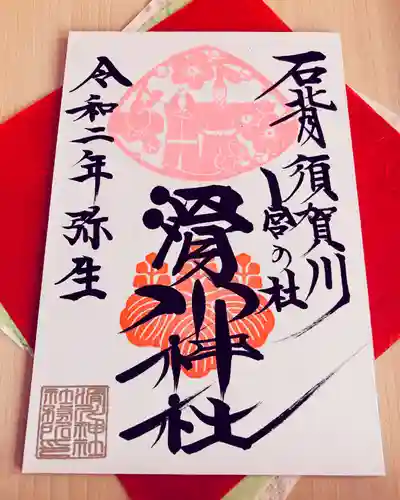 石背 須賀川
宮の杜
滑川神社
令和二年 弥生